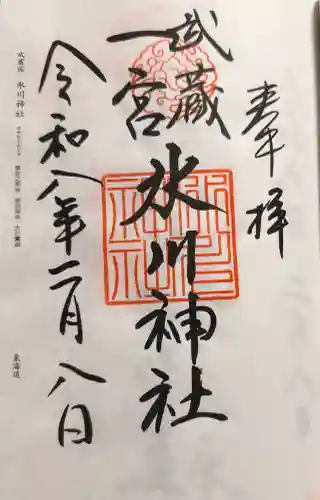 奉拝
武蔵
一宮
氷川神社
令和八年二月八日
武蔵国 氷川神社
東海道